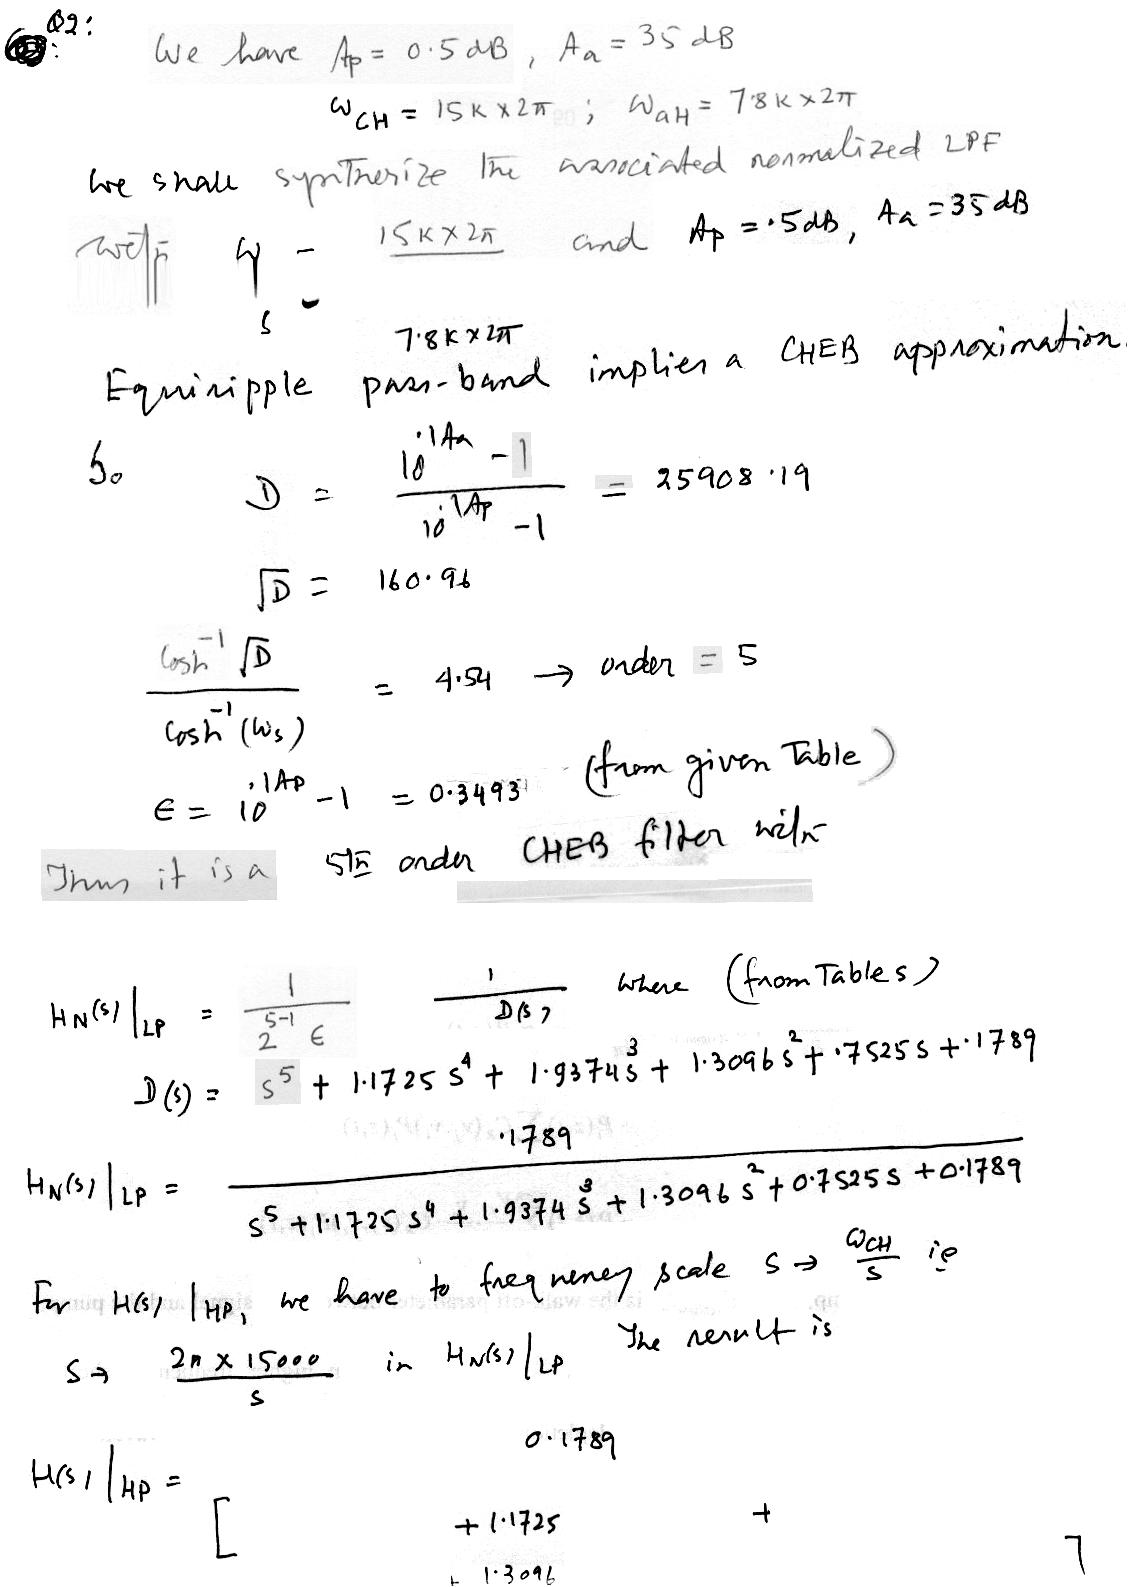 Q2:
We have Ap = 0.5 dB, Aa = 35 dB
ωCH = 15K × 2π ; ωaH = 7.8K × 2π
We shall synthesize the associated normalized LPF
with ωs = 15K×2π / 7.8K×2π and Ap = .5dB, Aa = 35 dB
Equiripple pass-band implies a CHEB approximation.
So D = (10^.1Aa - 1) / (10^.1Ap - 1) = 25908.19
√D = 160.96
Cosh^-1 √D / Cosh^-1 (ωs) = 4.54 → order = 5
ϵ = 10^.1Ap - 1 = 0.3493 (from given Table)
Thus it is a 5th order CHEB filter with
HN(s)|LP = 1 / 2^5-1 ϵ 1 / D(s) where (from Tables)
D(s) = s^5 + 1.1725 s^4 + 1.9374 s^3 + 1.3096 s^2 + .7525 s + .1789
HN(s)|LP = .1789 / s^5 + 1.1725 s^4 + 1.9374 s^3 + 1.3096 s^2 + 0.7525 s + 0.1789
For H(s)|HP, we have to frequency scale s → ωCH / s ie
s → 2π × 15000 / s in HN(s)|LP The result is
H(s)|HP = 0.1789
[ + 1.1725 + ]
+ 1.3096